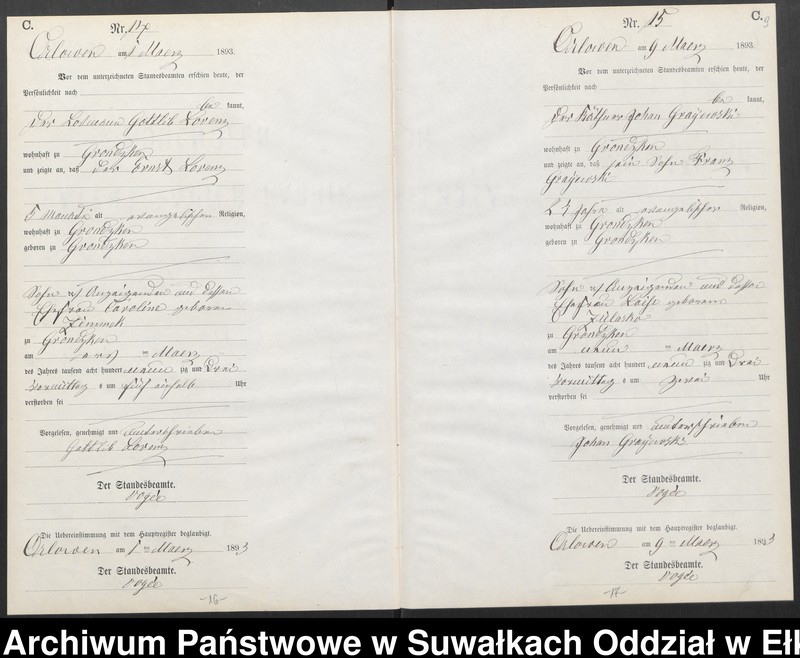 C.
Nr. 14
Orlowen am 1 Maerz 1893.
Vor dem unterzeichneten Standesbeamten erschien heute, der
Persönlichkeit nach
be kannt,
der Losmann Gottlib Lorenz
wohnhaft zu Grondzken
und zeigte an, daß der Ernst Lorenz
5 Monate alt evangelischer Religion,
wohnhaft zu Grondzken
geboren zu Grondzken
Sohn des Anzeigenden und dessen
Ehefrau Caroline geborene
zu Grondzken
am Maerz
des Jahres tausend acht hundert neun zig und Drei
Vormittag s um fünf einhalb Uhr
verstorben sei
Vorgelesen, genehmigt und unterschrieben
Gottlib Lorenz
Der Standesbeamte.
Vogée
Die Uebereinstimmung mit dem Hauptregister beglaubigt.
Orlowen am 1 ten Maerz 1893
Der Standesbeamte.
Vogée
-16-
C.
9
Nr. 15
Orlowen am 9 Maerz 1893.
Vor dem unterzeichneten Standesbeamten erschien heute, der
Persönlichkeit nach
be kannt,
der Käthner Johan Grajewski
wohnhaft zu Grondzken
und zeigte an, daß sein Sohn Franz
Grajewski
2 3 Jahre alt evangelischer Religion,
wohnhaft zu Grondzken
geboren zu Grondzken
Sohn des Anzeigenden und dessen
Ehefrau geborene
zu Grondzken
am neun ten Maerz
des Jahres tausend acht hundert neun zig und Drei
Vormittag s um zwei Uhr
verstorben sei
Vorgelesen, genehmigt und unterschrieben
Johan Grajewski
Der Standesbeamte.
Vogée
Die Uebereinstimmung mit dem Hauptregister beglaubigt.
Orlowen am 9 ten Maerz 1893
Der Standesbeamte.
Vogée
-17-
Archiwum Państwowe w Suwałkach Oddział w Ełk